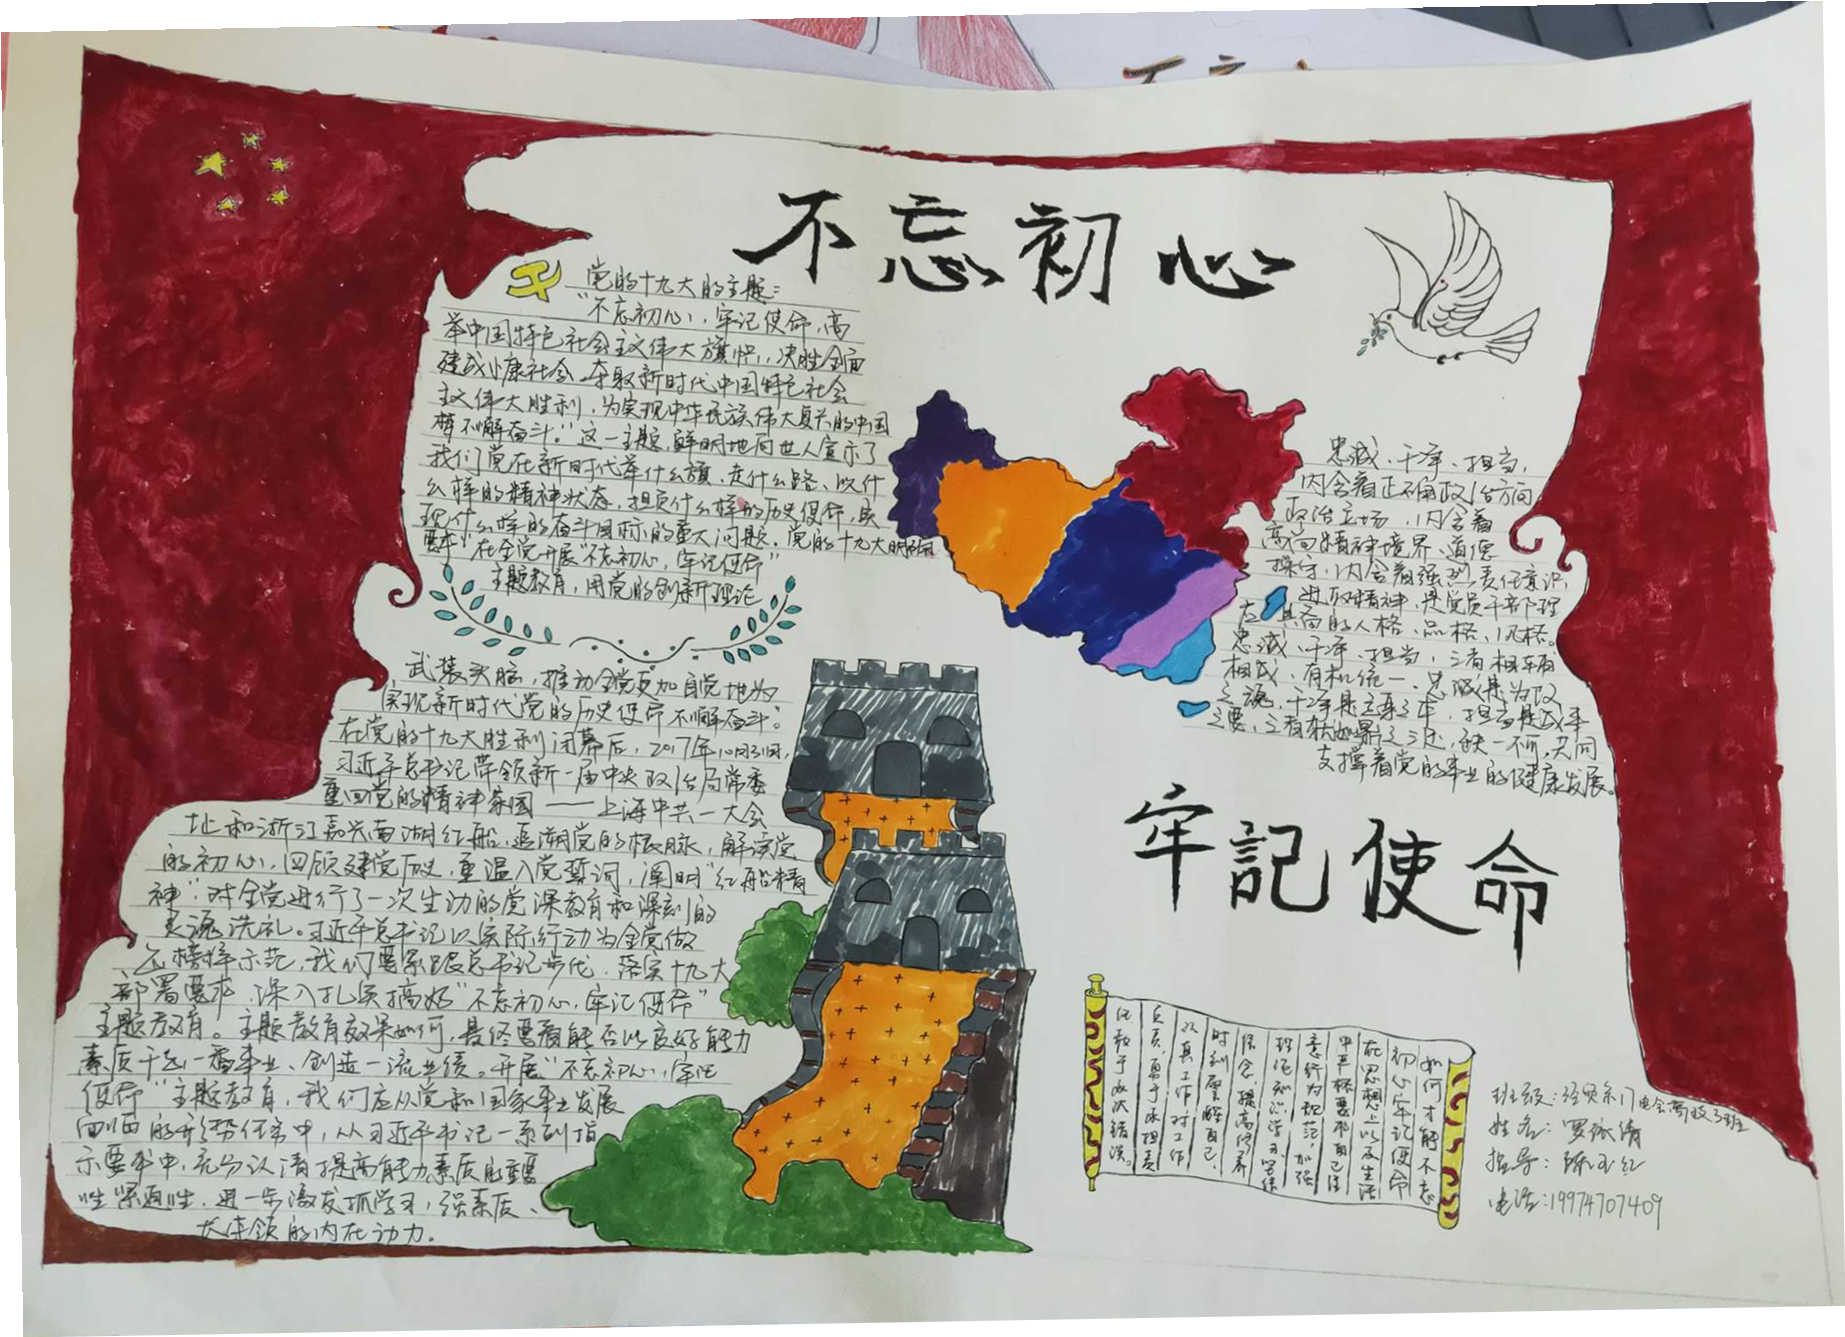 不忘初心
党的十九大的主题:
“不忘初心,牢记使命,高
举中国特色社会主义伟大旗帜,决胜全面
建成小康社会,夺取新时代中国特色社会
主义伟大胜利,为实现中华民族伟大复兴的中国
梦不懈奋斗。”这一主题,鲜明地向世人宣示了
我们党在新时代举什么旗、走什么路、以什
么样的精神状态、担负什么样的历史使命,实
现什么样的奋斗目标的重大问题。党的十九大明确
要求“在全党开展“不忘初心,牢记使命”
主题教育,用党的创新理论
武装头脑,推动全党更加自觉地为
实现新时代党的历史使命不懈奋斗”。
在党的十九大胜利闭幕后,2017年10月31日,
习近平总书记带领新一届中央政治局常委
重回党的精神家园——上海中共一大会
址和浙江嘉兴南湖红船,追溯党的根脉,解读党
的初心,回顾建党历史,重温入党誓词,阐明“红船精
神”对全党进行了一次生动的党课教育和深刻的
灵魂洗礼。习近平总书记以实际行动为全党做
出榜样示范,我们要紧跟总书记步伐,落实十九大
部署要求,深入扎实搞好“不忘初心,牢记使命”
主题教育。主题教育效果如何,最终要看能否以良好能力
素质干出一番事业、创造一流业绩。开展“不忘初心,牢记
使命”主题教育,我们应从党和国家事业发展
面临的形势任务中,从习近平书记一系列指
示要求中,充分认清提高能力素质的重要
性紧迫性,进一步激发抓学习,强素质、
大本领的内在动力.
忠诚、干净、担当,
内含着正确政治方向
政治立场,内含着
高尚精神境界、道德
操守,内含着强烈责任意识,
进取精神,是党员干部理
应具备的人格、品格、风格。
忠诚、干净、担当,三者相辅
相成、有机统一。忠诚是为政
之魂,干净是立身之本,担当是成事
之要,三者犹如鼎之三足,缺一不可,共同
支撑着党的事业的健康发展。
牢記使命
如何才能不忘
初心牢记使命
在思想上以及生活
中严格要求自己注
意行为规范,加强
理论知识学习,坚信
信念,提高修养
时刻警醒自己,
认真工作,对工作
负责,勇于承担责
任敢于承认错误。
班级:经贸系17电会高技3班
姓名:罗依倩
指导:陈玉红
电话:19974707409